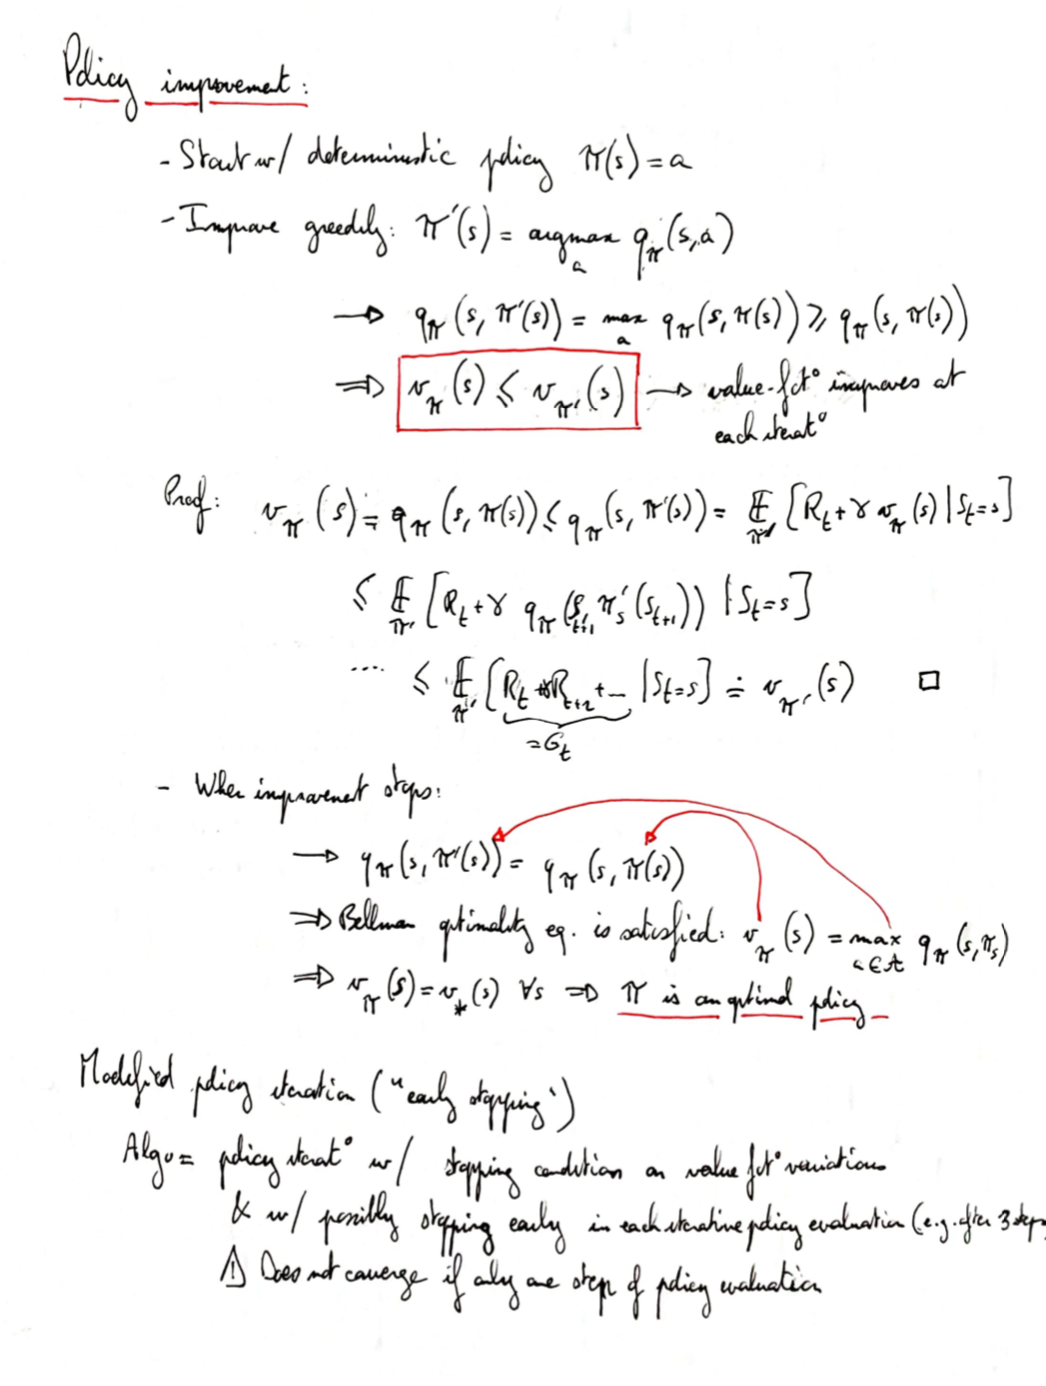 Policy improvement:
- Start w/ deterministic policy π(s) = a
- Improve greedily: π'(s) = argmax_a q_π(s,a)
→ q_π(s, π'(s)) = max_a q_π(s, π(s)) ≥ q_π(s, π(s))
⇒ v_π(s) ≤ v_π'(s) → value-fct° improves at
each iterat°
Proof: v_π(s) ≐ q_π(s, π(s)) ≤ q_π(s, π'(s)) = 𝔼_π' [R_t + γ v_π(s) | S_t = s]
≤ 𝔼_π' [R_t + γ q_π(S_t+1, π'_s(S_t+1)) | S_t = s]
.... ≤ 𝔼_π' [R_t + γR_t+2 + ... | S_t = s] ≐ v_π'(s) □
= G_t
- When improvement stops:
→ q_π(s, π'(s)) = q_π(s, π(s))
⇒ Bellman optimality eq. is satisfied: v_π(s) = max_a∈A q_π(s, π_s)
⇒ v_π(s) = v_*(s) ∀s ⇒ π is an optimal policy
Modified policy iteration ("early stopping")
Algo = policy iterat° w/ stopping condition on value fct° variations
& w/ possibly stopping early in each iterative policy evaluation (e.g. after 3 step
⚠ Does not converge if only one step of policy evaluation